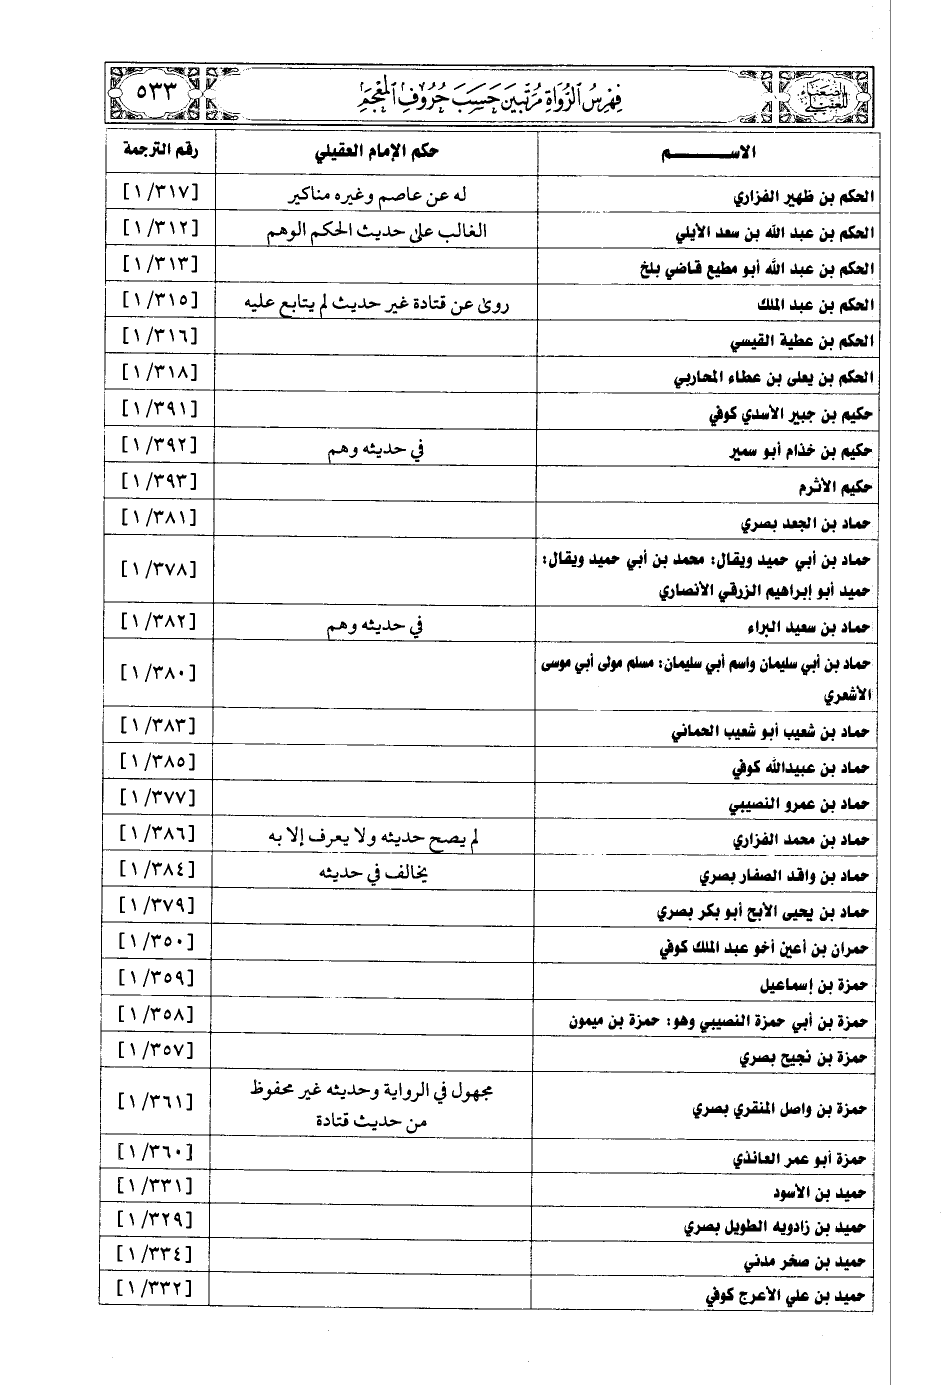 الضعفاء للعقيلي فِهْرِسُ الرُّوَاةِ مُرَتَّبِينَ حَسَبَ حُرُوفِ المُعْجَمِ ٥٣٣
الاســـــــم حكم الإمام العقيلي رقم الترجمة
الحكم بن ظهير الفزاري له عن عاصم وغيره مناكير [١/٣١٧]
الحكم بن عبد الله بن سعد الأيلي الغالب على حديث الحكم الوهم [١/٣١٢]
الحكم بن عبد الله أبو مطيع قاضي بلخ [١/٣١٣]
الحكم بن عبد الملك روى عن قتادة غير حديث لم يتابع عليه [١/٣١٥]
الحكم بن عطية القيسي [١/٣١٦]
الحكم بن يعلى بن عطاء المحاربي [١/٣١٨]
حكيم بن جبير الأسدي كوفي [١/٣٩١]
حكيم بن خذام أبو سمير في حديثه وهم [١/٣٩٢]
حكيم الأثرم [١/٣٩٣]
حماد بن الجعد بصري [١/٣٨١]
حماد بن أبي حميد ويقال: محمد بن أبي حميد ويقال:
حميد أبو إبراهيم الزرقي الأنصاري [١/٣٧٨]
حماد بن سعيد البراء في حديثه وهم [١/٣٨٢]
حماد بن أبي سليمان واسم أبي سليمان: مسلم مولى أبي موسى
الأشعري [١/٣٨٠]
حماد بن شعيب أبو شعيب الحماني [١/٣٨٣]
حماد بن عبيدالله كوفي [١/٣٨٥]
حماد بن عمرو النصيبي [١/٣٧٧]
حماد بن محمد الفزاري لم يصح حديثه ولا يعرف إلا به [١/٣٨٦]
حماد بن واقد الصفار بصري يخالف في حديثه [١/٣٨٤]
حماد بن يحيى الأبح أبو بكر بصري [١/٣٧٩]
حمران بن أعين أخو عبد الملك كوفي [١/٣٥٠]
حمزة بن إسماعيل [١/٣٥٩]
حمزة بن أبي حمزة النصيبي وهو: حمزة بن ميمون [١/٣٥٨]
حمزة بن نجيح بصري [١/٣٥٧]
حمزة بن واصل المنقري بصري مجهول في الرواية وحديثه غير محفوظ [١/٣٦١]
من حديث قتادة
حمزة أبو عمر العائذي [١/٣٦٠]
حميد بن الأسود [١/٣٣١]
حميد بن زادويه الطويل بصري [١/٣٢٩]
حميد بن صخر مدني [١/٣٣٤]
حميد بن علي الأعرج كوفي [١/٣٣٢]